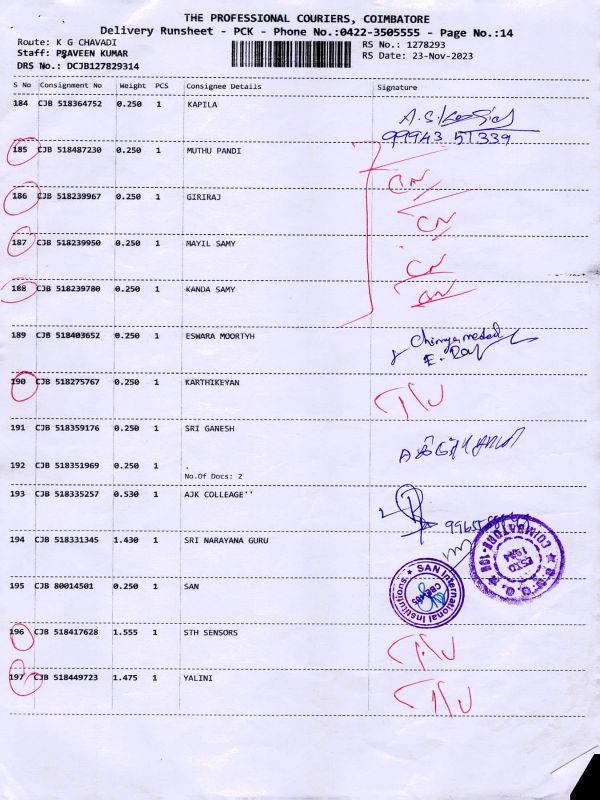 THE PROFESSIONAL COURIERS, COIMBATORE
Delivery Runsheet - PCK - Phone No.:0422-3505555 - Page No.:14
Route: K G CHAVADI
RS No.: 1278293
Staff: PRAVEEN KUMAR
RS Date: 23-Nov-2023
DRS No.: DCJB127829314
S No Consignment No Weight PCS Consignee Details Signature
184 CJB 518364752 0.250 1 KAPILA
99943 51339
185 CJB 518487230 0.250 1 MUTHU PANDI
186 CJB 518239967 0.250 1 GIRIRAJ
CN
187 CJB 518239950 0.250 1 MAYIL SAMY
CN
188 CJB 518239780 0.250 1 KANDA SAMY
CN
189 CJB 518403652 0.250 1 ESWARA MOORTYH
190 CJB 518275767 0.250 1 KARTHIKEYAN
191 CJB 518359176 0.250 1 SRI GANESH
192 CJB 518351969 0.250 1 .
No.Of Docs: 2
193 CJB 518335257 0.530 1 AJK COLLEAGE''
194 CJB 518331345 1.430 1 SRI NARAYANA GURU
COIMBATORE-105
ESTD
1994
195 CJB 80014501 0.250 1 SAN
SAN International Institutions
CBE-105
196 CJB 518417628 1.555 1 STH SENSORS
197 CJB 518449723 1.475 1 YALINI